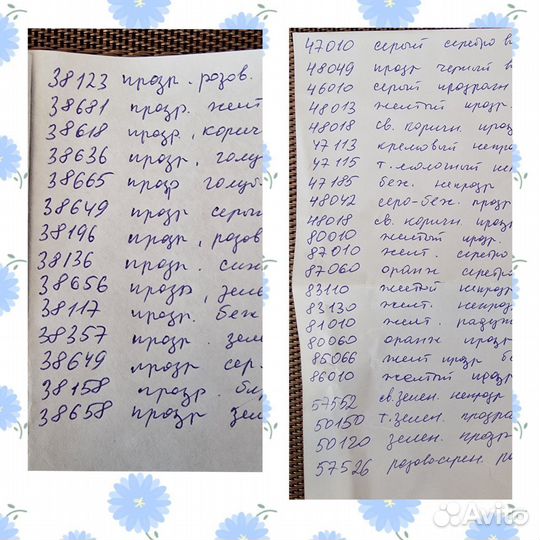 38123 прозр. розов.
38681 прозр. жёлт
38618 прозр., корич
38636 прозр, голу
38665 прозр голуб
38649 прозр серы
38196 прозр, розов
38136 прозр. син
38656 прозр, зель
38117 прозр. беж
38357 прозр. зеле
38649 прозр сер.
38158 прозр.
38658 прозр зел
47010 серый серебро в
48049 прозр черный в
46010 серый прозрачн
48013 желтый прозр.
48018 св. коричн. проз
47113 кремовый непро
47115 т. молочный неп
47185 беж. непрозр
48042 серо-беж. прозр
48018 св. коричн. прозр
80010 желтый прозр.
87010 желт. серебро
87060 оранж серебро
83110 желтый непрозр
83130 желт. непрозр
81010 желт. радуж
80060 оранж прозр
85066 желт прозр бе
86010 желтый прозр
57552 св.зелен. непрозр
50150 т.зелен. прозра
50120 зелен. прозр
57526 розовосирен.
Avito